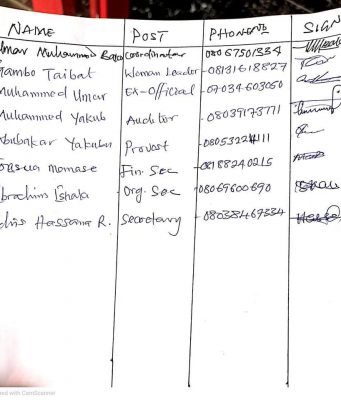 NAME POST PHONE NO SIGN
Umar Muhammad Bala Coordinator 08067501334
Gambo Taibat Woman Leader 08131618827
Muhammed Umar Ex-Official 07034603050
Muhammed Yakub Auditor 08039173711
Abubakar Yakubu Provost
Momase Fin. Sec 08188240215
Ibrahim Ishala Org. Sec 08069600690
Hassana R. Secretary 08038469334
ed with CamScanner